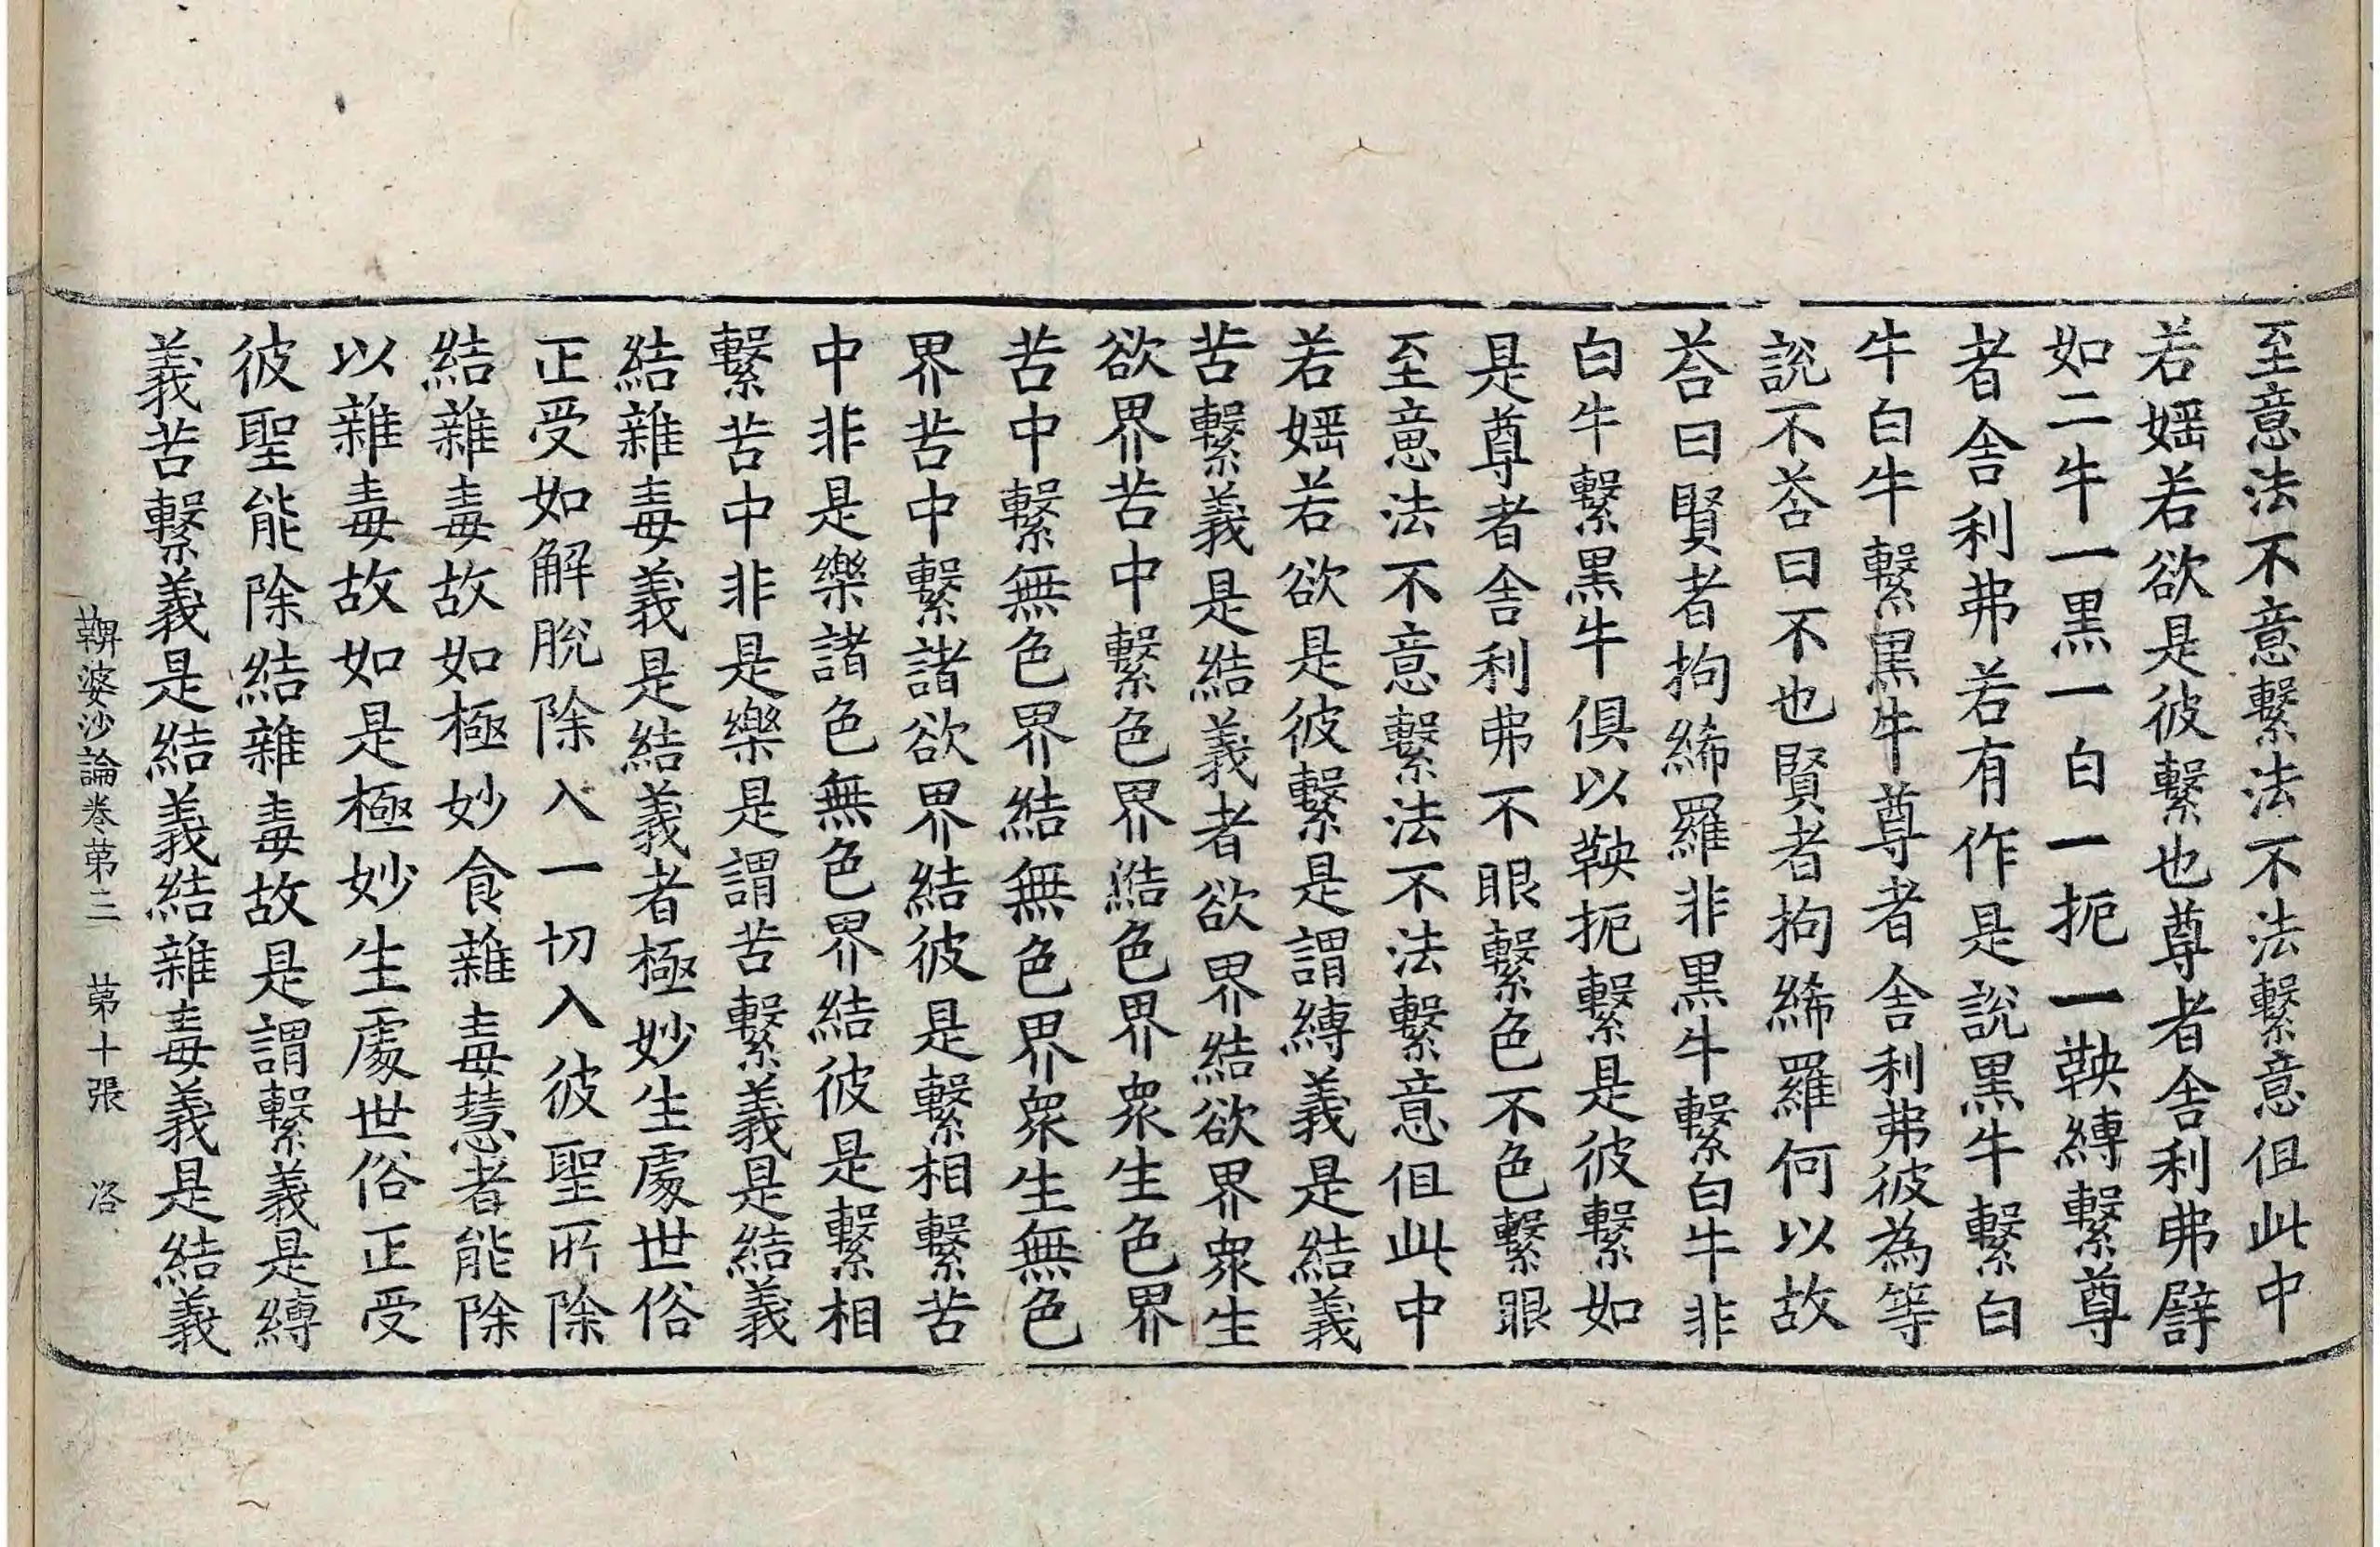 至意法不意繫法不法繫意但此中
若婬若欲是彼繫也尊者舍利弗譬
如二牛一黒一白一扼一鞅縛繫尊
者舍利弗若有作是說黒牛繫白
牛白牛繫黒牛尊者舍利弗彼為等
說不荅曰不也賢者拘絺羅何以故
荅曰賢者拘絺羅非黒牛繫白牛非
白牛繫黒牛俱以鞅扼繫是彼繫如
是尊者舍利弗不眼繫色不色繫眼
至意法不意繫法不法繫意但此中
若婬若欲是彼繫是謂縛義是結義
苦繫義是結義者欲界結欲界衆生
欲界苦中繫色界結色界衆生色界
苦中繫無色界結無色界衆生無色
界苦中繫諸欲界結彼是繫相繫苦
中非是樂諸色無色界結彼是繫相
繫苦中非是樂是謂苦繫義是結義
結雜毒義是結義者極妙生處世俗
正受如解脫除入一切入彼聖所除
結雜毒故如極妙食雜毒慧者能除
以雜毒故如是極妙生處世俗正受
彼聖能除結雜毒故是謂繫義是縛
義苦繫義是結義結雜毒義是結義
鞞婆沙論卷第三 第十張 洛